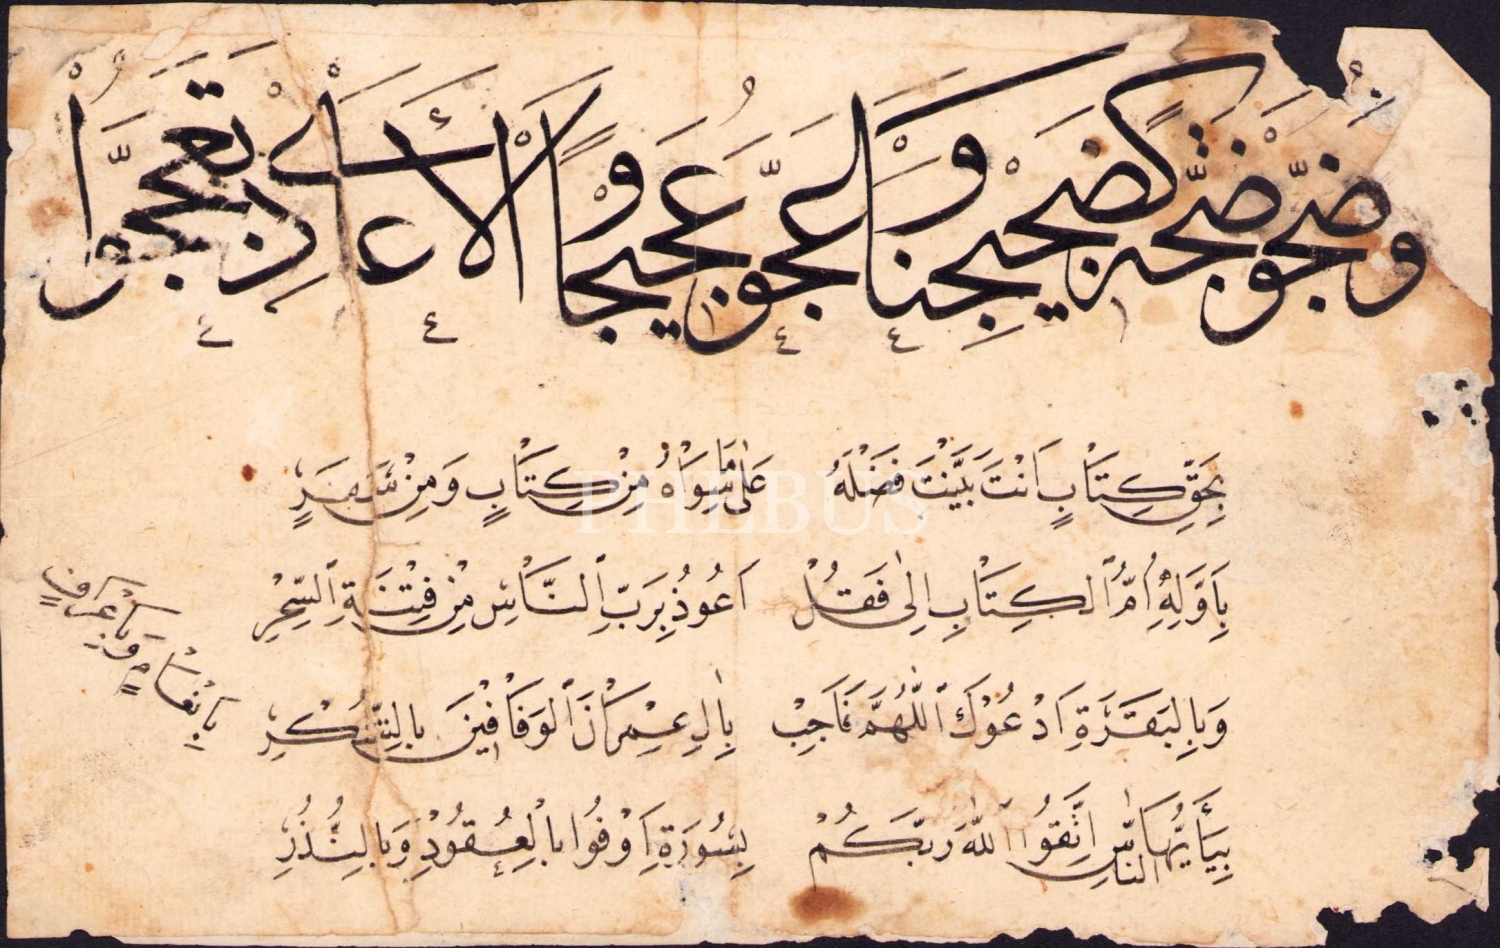 وَضَجُّوا ضَجَّةً كَضَجِيجِنَا وَلَعَجُّوا عَجِيجًا وَالْأَعَادِي تَعَجَّجُوا
بِحَقِّ كِتَابٍ اَنْتَ بَيَّنْتَ فَضْلَهُ عَلٰى مَاسِوَاهُ مِنْ كِتَابٍ وَمِنْ سَفَرٍ
بِاَوَّلِهِ اُمُّ الْكِتَابِ اِلٰى فَقُلْ اَعُوذُ بِرَبِّ النَّاسِ مِنْ فِتْنَةِ السِّحْرِ
وَبِالبَقَرَةِ اَدْعُوْكَ اَللّٰهُمَّ فَاَجِبْ بِاٰلِ عِمْرَانَ الوَفَافِيْنَ بِالشُّكْرِ
بِيَاَيُّهَا النَّاسُ اتَّقُوا اللهَ رَبَّكُمْ بِسُورَةِ اَوْفُوا بِالْعُقُوْدِ وَبِالنُّذُرِ
بِاَنْعَامٍ وَبِاَعْرَافٍ
PHEBUS